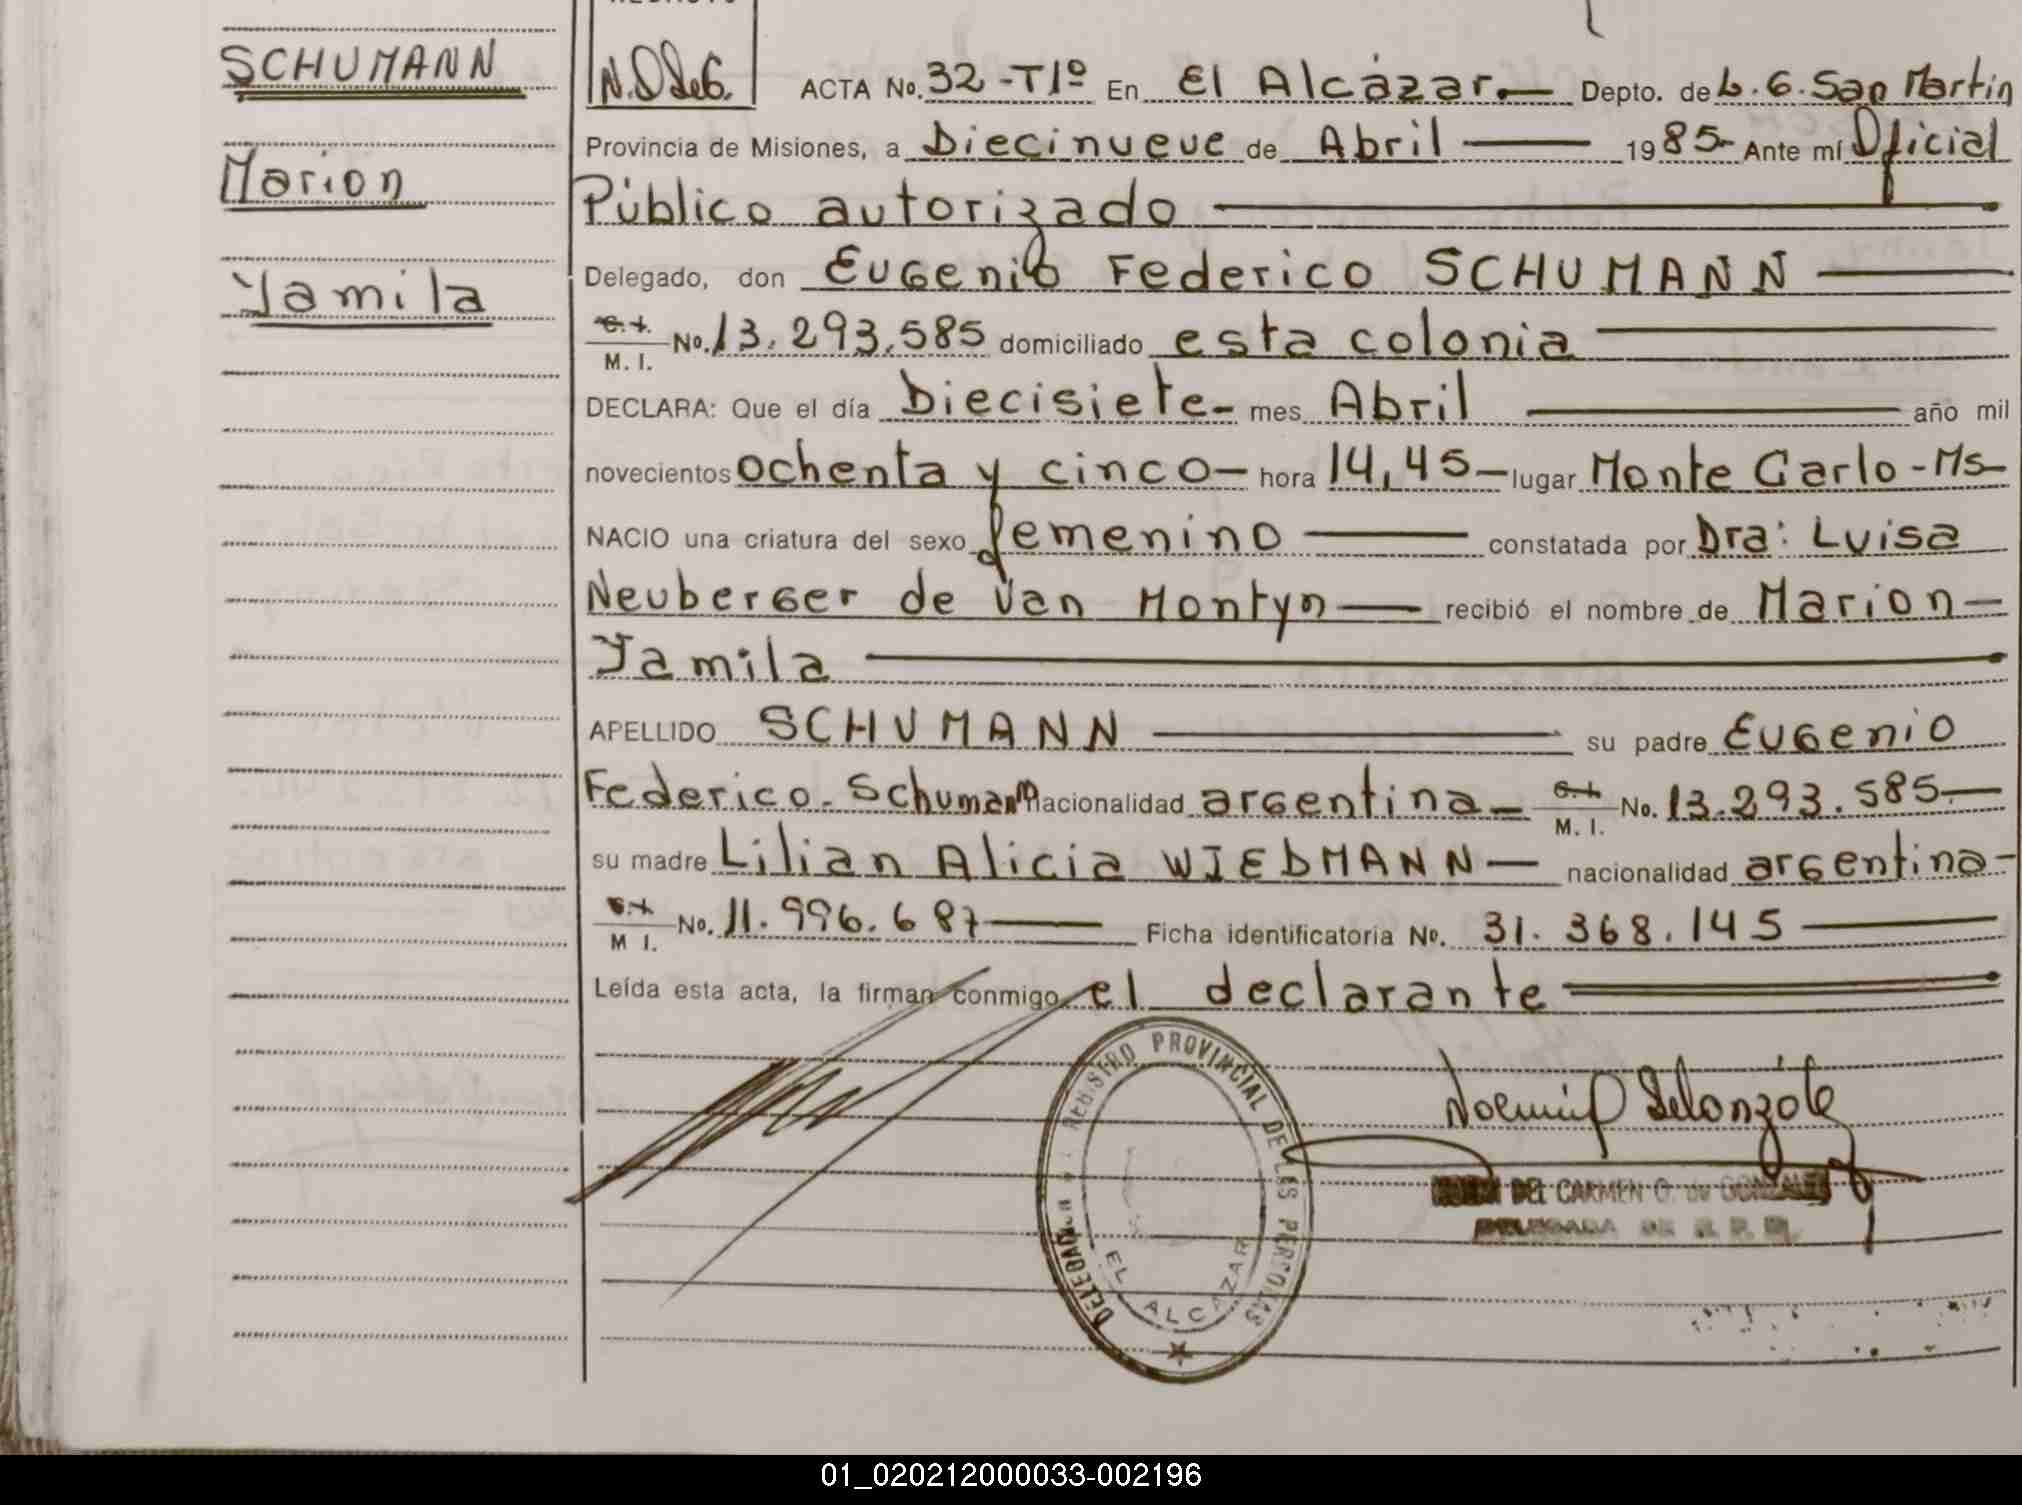 SCHUMANN
Marion
Yamila
ACTA No. 32-T1º En El Alcázar.— Depto. de L. G. San Martin
Provincia de Misiones, a Diecinueve de Abril — 1985- Ante mí Oficial
Público autorizado —
Delegado, don Eugenio Federico SCHUMANN —
M. I. No. 13.293.585 domiciliado esta colonia —
DECLARA: Que el día Diecisiete- mes Abril — año mil
novecientos ochenta y cinco— hora 14,45— lugar Monte Carlo - Ms—
NACIO una criatura del sexo femenino — constatada por Dra: Luisa
Neuberger de Van Montyn — recibió el nombre de Marion—
Yamila —
APELLIDO SCHUMANN — su padre Eugenio
Federico. Schumann nacionalidad argentina— M. I. No. 13.293.585—
su madre Lilian Alicia WIEDMANN— nacionalidad argentina-
M I. No. 11.996.687— Ficha identificatoria No. 31.368.145 —
Leída esta acta, la firman conmigo el declarante
REGISTRO PROVINCIAL DE LAS PERSONAS
EL ALCAZAR
DEL CARMEN O. de GONZALEZ
DELEGADA DE R. P. P.
01_020212000033-002196